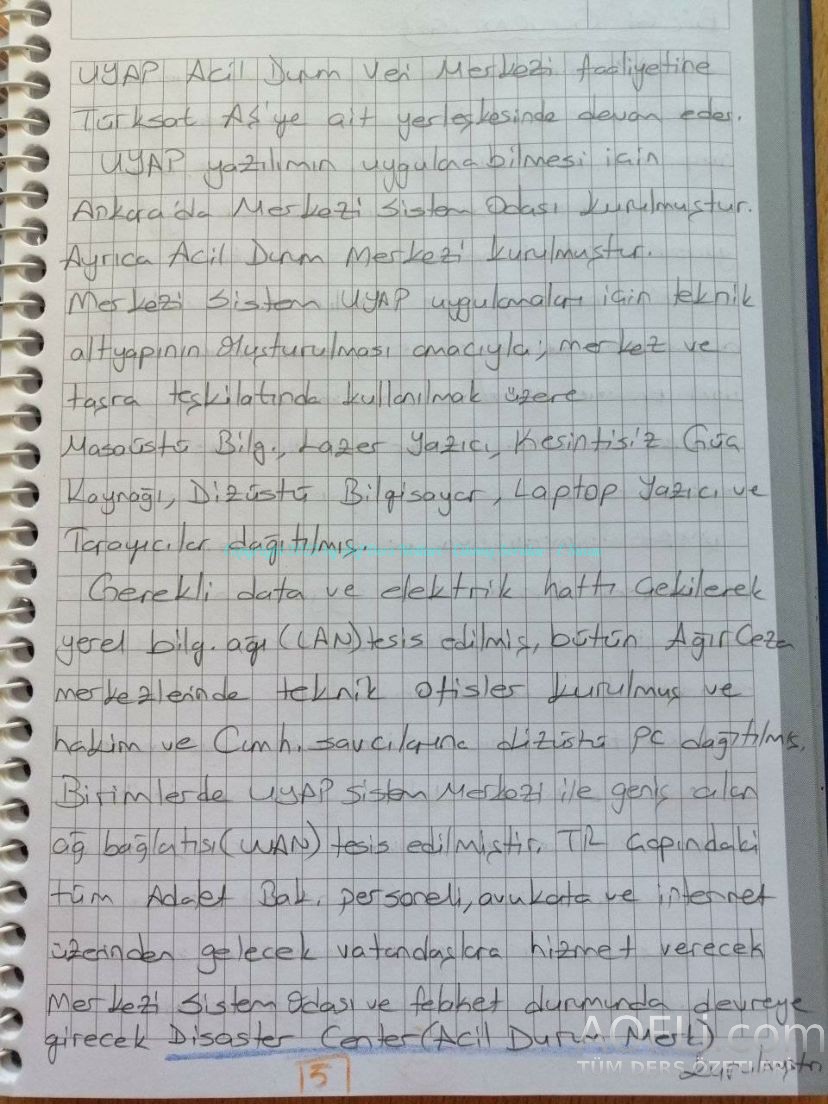 UYAP Acil Durum Veri Merkezi faaliyetine
Türksat AŞ'ye ait yerleşkesinde devam eder.
UYAP yazılımın uygulanabilmesi için
Ankara'da Merkezi Sistem Odası kurulmuştur.
Ayrıca Acil Durum Merkezi kurulmuştur.
Merkezi Sistem UYAP uygulamaları için teknik
altyapının oluşturulması amacıyla; merkez ve
taşra teşkilatında kullanılmak üzere
Masaüstü Bilg., Lazer Yazıcı, Kesintisiz Güç
Kaynağı, Dizüstü Bilgisayar, Laptop Yazıcı ve
Tarayıcılar dağıtılmış.
Gerekli data ve elektrik hattı çekilerek
yerel bilg. ağı (LAN) tesis edilmiş, bütün Ağır Ceza
merkezlerinde teknik ofisler kurulmuş ve
hakim ve Cumh. savcılarına dizüstü PC dağıtılmış.
Birimlerde UYAP Sistem Merkezi ile geniş alan
ağ bağlatısı (WAN) tesis edilmiştir. TR çapındaki
tüm Adalet Bak. personeli, avukata ve internet
üzerinden gelecek vatandaşlara hizmet verecek
Merkezi Sistem Odası ve felaket durumunda devreye
girecek Disaster Center (Acil Durum Merk)
AOFLi.com
TÜM DERS ÖZETLERİ
5